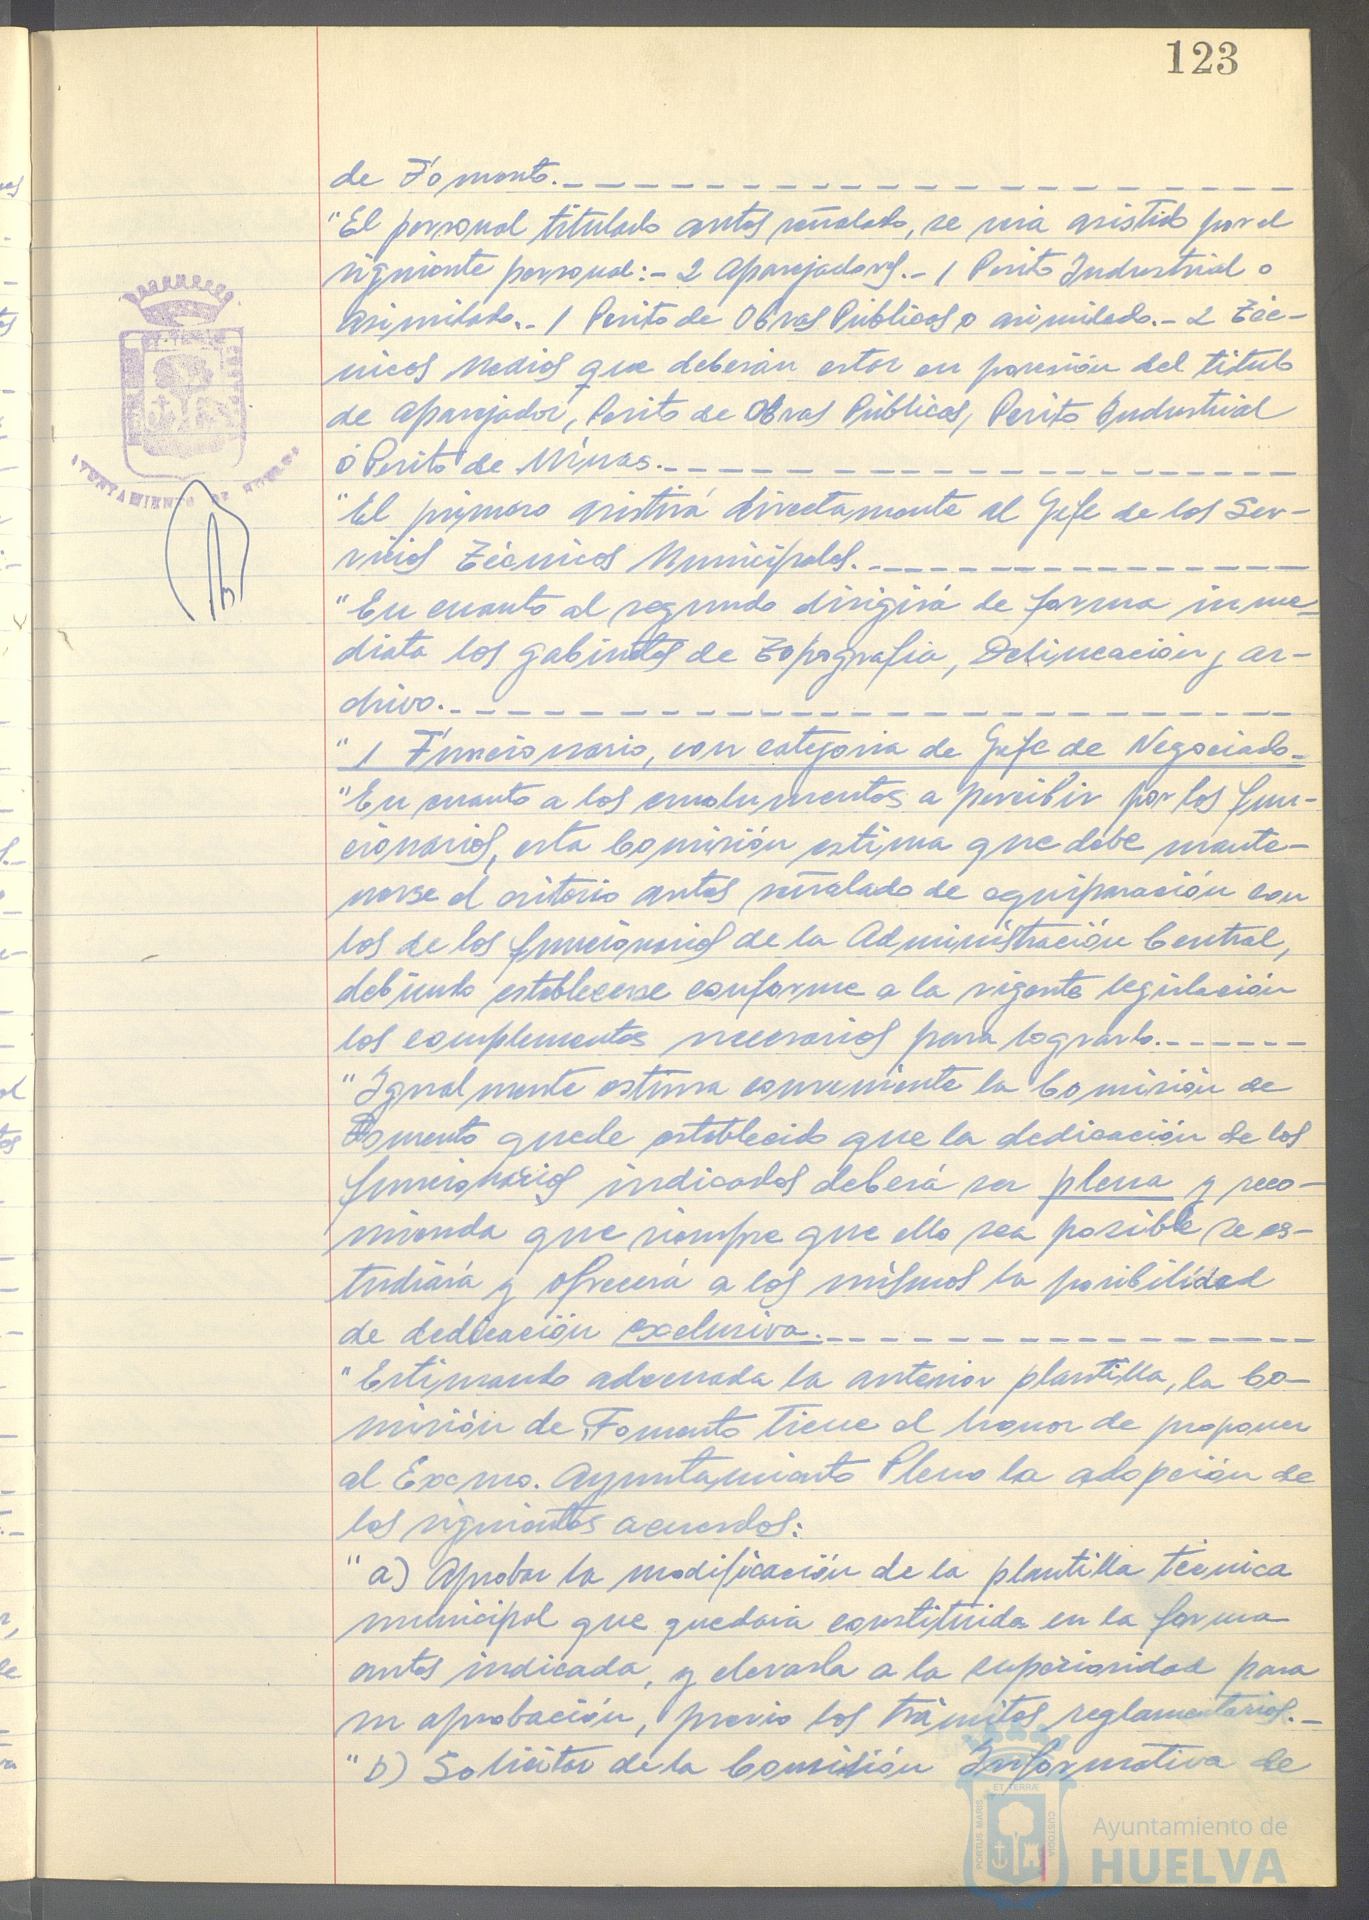 123
de Fomento.
"El personal titulado antes señalado, se verá asistido por el
siguiente personal:- 2 Aparejadores.- 1 Perito Industrial o
asimilado.- 1 Perito de Obras Públicas o asimilado.- 2 Téc-
nicos Medios que deberán estar en posesión del título
de Aparejador, Perito de Obras Públicas, Perito Industrial
ó Perito de Minas.
"El primero asistirá directamente al Jefe de los Ser-
vicios Técnicos Municipales.
"En cuanto al segundo dirigirá de forma inme-
diata los gabinetes de Topografía, Delineación y ar-
chivo.
" 1 Funcionario, con categoría de Jefe de Negociado.
"En cuanto a los emolumentos a percibir por los fun-
cionarios, esta Comisión estima que debe mante-
nerse el criterio antes señalado de equiparación con
los de los funcionarios de la Administración Central,
debiendo establecerse conforme a la vigente legislación
los complementos necesarios para lograrlo.
"Igualmente estima conveniente la Comisión de
Fomento quede establecido que la dedicación de los
funcionarios indicados deberá ser plena y reco-
mienda que siempre que ello sea posible se es-
tudiará y ofrecerá a los mismos la posibilidad
de dedicación exclusiva.
"Estimando adecuada la anterior plantilla, la Co-
misión de Fomento tiene el honor de proponer
al Excmo. Ayuntamiento Pleno la adopción de
los siguientes acuerdos:
"a) Aprobar la modificación de la plantilla técnica
municipal que quedaría constituida en la forma
antes indicada, y elevarla a la superioridad para
su aprobación, previo los trámites reglamentarios.-
"b) Solicitar de la Comisión Informativa de
AYUNTAMIENTO DE HUELVA
PORTUS MARIS
ET TERRÆ
CUSTODIA
Ayuntamiento de
HUELVA